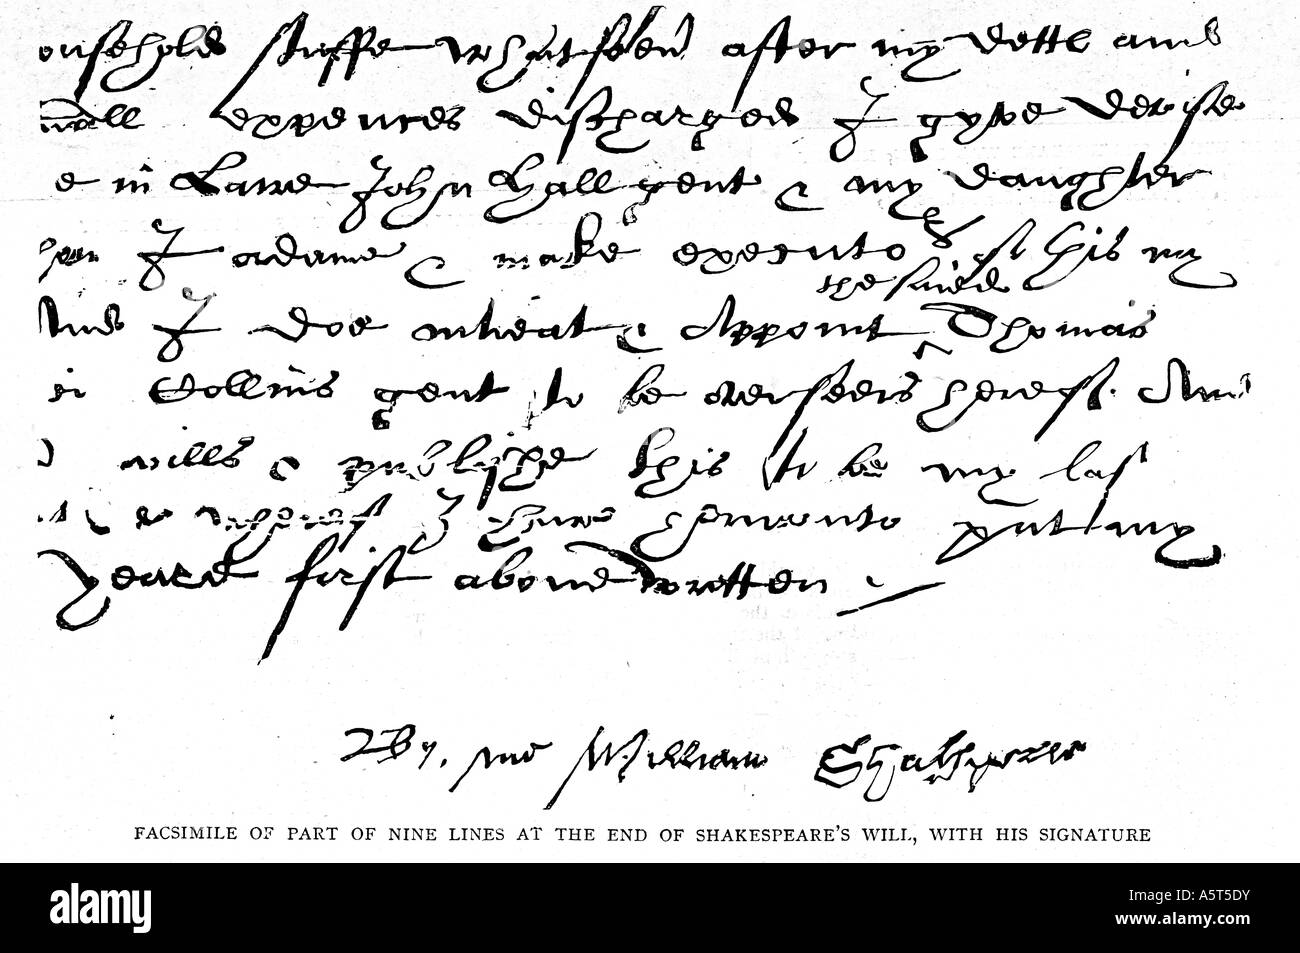 ousehold stuffe whatsoeu after my dettℯ and
unall expences dischardged I gyve devise
e in Lawe John Hall gent & my daughter
I ordaine & make executors of this my
And I doe intreat & Appoint the saied Thomas
Collins gent to be overseers hereof And
wills & publishe this to be my last
whereof I have hereunto put my
yeare first above written
By me William Shakspeare
FACSIMILE OF PART OF NINE LINES AT THE END OF SHAKESPEARE'S WILL, WITH HIS SIGNATURE
alamy
Image ID: A5T5DY
www.alamy.com